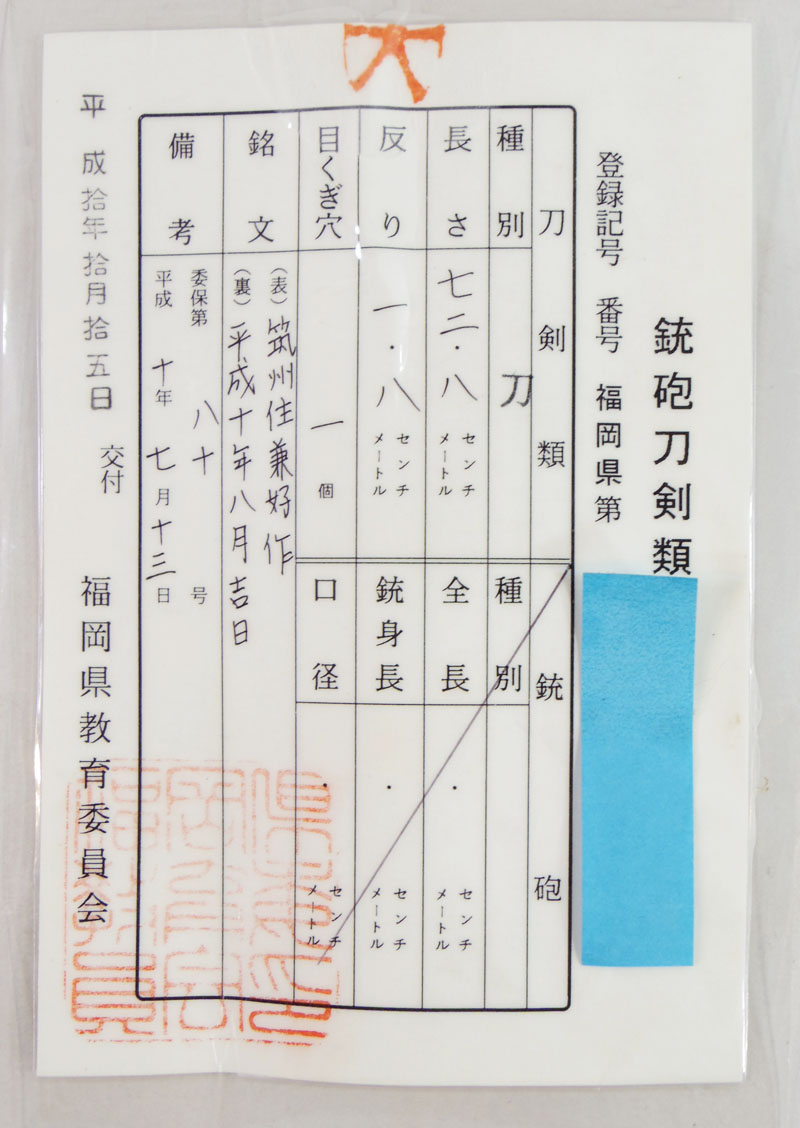 銃砲刀剣類
登録記号 番号 福岡県第
刀剣類
種別 刀
長さ 七二・八 センチメートル
反り 一・八 センチメートル
目くぎ穴 一 個
銃砲
種別
全長 ・ センチメートル
銃身長 ・ センチメートル
口径 ・ センチメートル
銘文
(表) 筑州住兼好作
(裏) 平成十年八月吉日
備考
委保第 八十 号
平成 十年 七月十三日
平成拾年拾月拾五日 交付
福岡県教育委員会